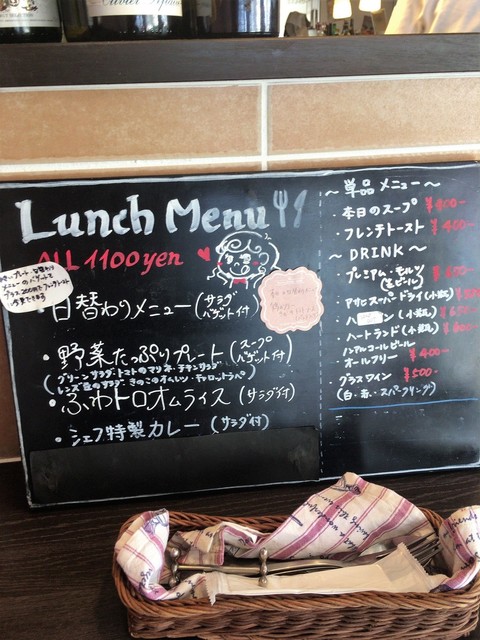 Lunch Menu
ALL 1100yen
日替わりメニュー(サラダ バゲット付)
・野菜たっぷりプレート(スープ バゲット付)
(グリーンサラダ・トマトのマリネ・チキンサラダ
レンズ豆のサラダ・きのこのオムレツ・キャロットラペ)
・ふわトロオムライス(サラダ付)
・シェフ特製カレー(サラダ付)
プレート、日替わり
メニューのバゲットを
プラス200円でフレンチトースト
へ変更できます
〜単品メニュー〜
・本日のスープ ¥400-
・フレンチトースト ¥400-
〜DRINK〜
・プレミアム・モルツ
(生ビール)
・アサヒスーパードライ(小瓶)
(小瓶)
・ハートランド(小瓶)
・ノンアルコールビール
オールフリー ¥400-
・グラスワイン ¥500-
(白・赤・スパークリング)